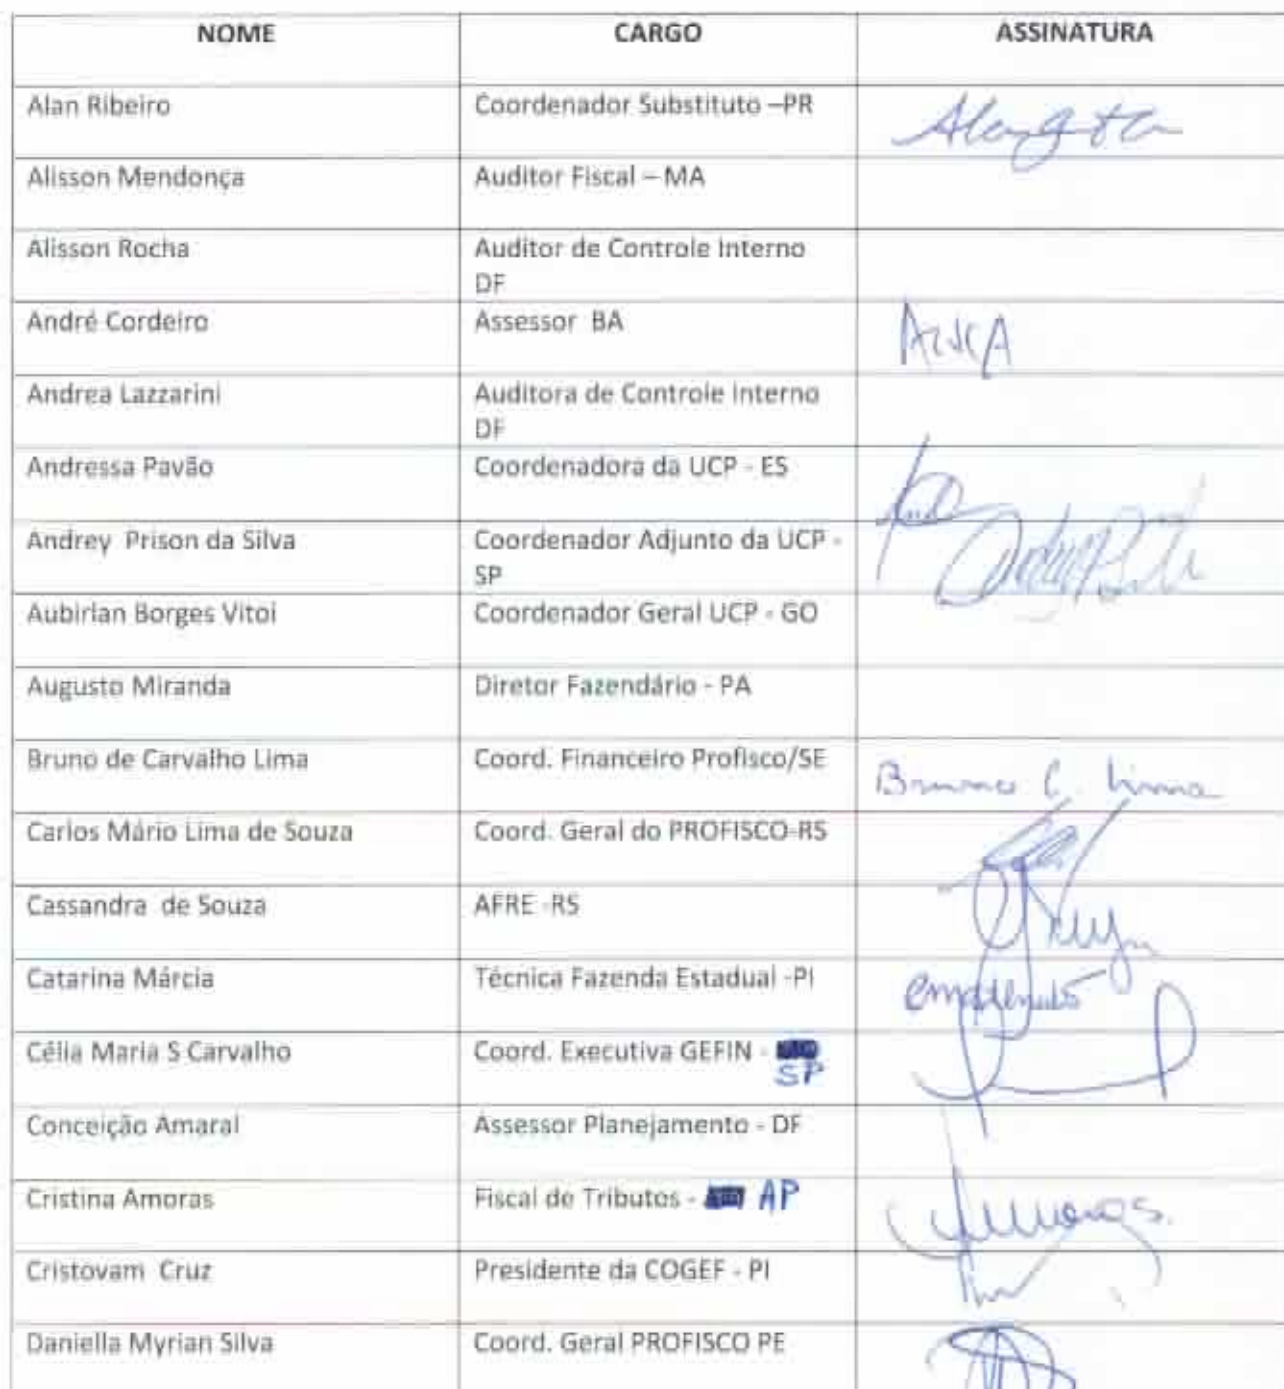 NOME CARGO ASSINATURA
Alan Ribeiro Coordenador Substituto –PR
Alisson Mendonça Auditor Fiscal – MA
Alisson Rocha Auditor de Controle Interno
DF
André Cordeiro Assessor BA
Andrea Lazzarini Auditora de Controle Interno
DF
Andressa Pavão Coordenadora da UCP - ES
Andrey Prison da Silva Coordenador Adjunto da UCP -
SP
Aubirlan Borges Vitoi Coordenador Geral UCP - GO
Augusto Miranda Diretor Fazendário - PA
Bruno de Carvalho Lima Coord. Financeiro Profisco/SE Bruno C. Lima
Carlos Mário Lima de Souza Coord. Geral do PROFISCO-RS
Cassandra de Souza AFRE -RS
Catarina Márcia Técnica Fazenda Estadual -PI
Célia Maria S Carvalho Coord. Executiva GEFIN -
SP
Conceição Amaral Assessor Planejamento - DF
Cristina Amoras Fiscal de Tributos - AP Amoras.
Cristovam Cruz Presidente da COGEF - PI
Daniella Myrian Silva Coord. Geral PROFISCO PE